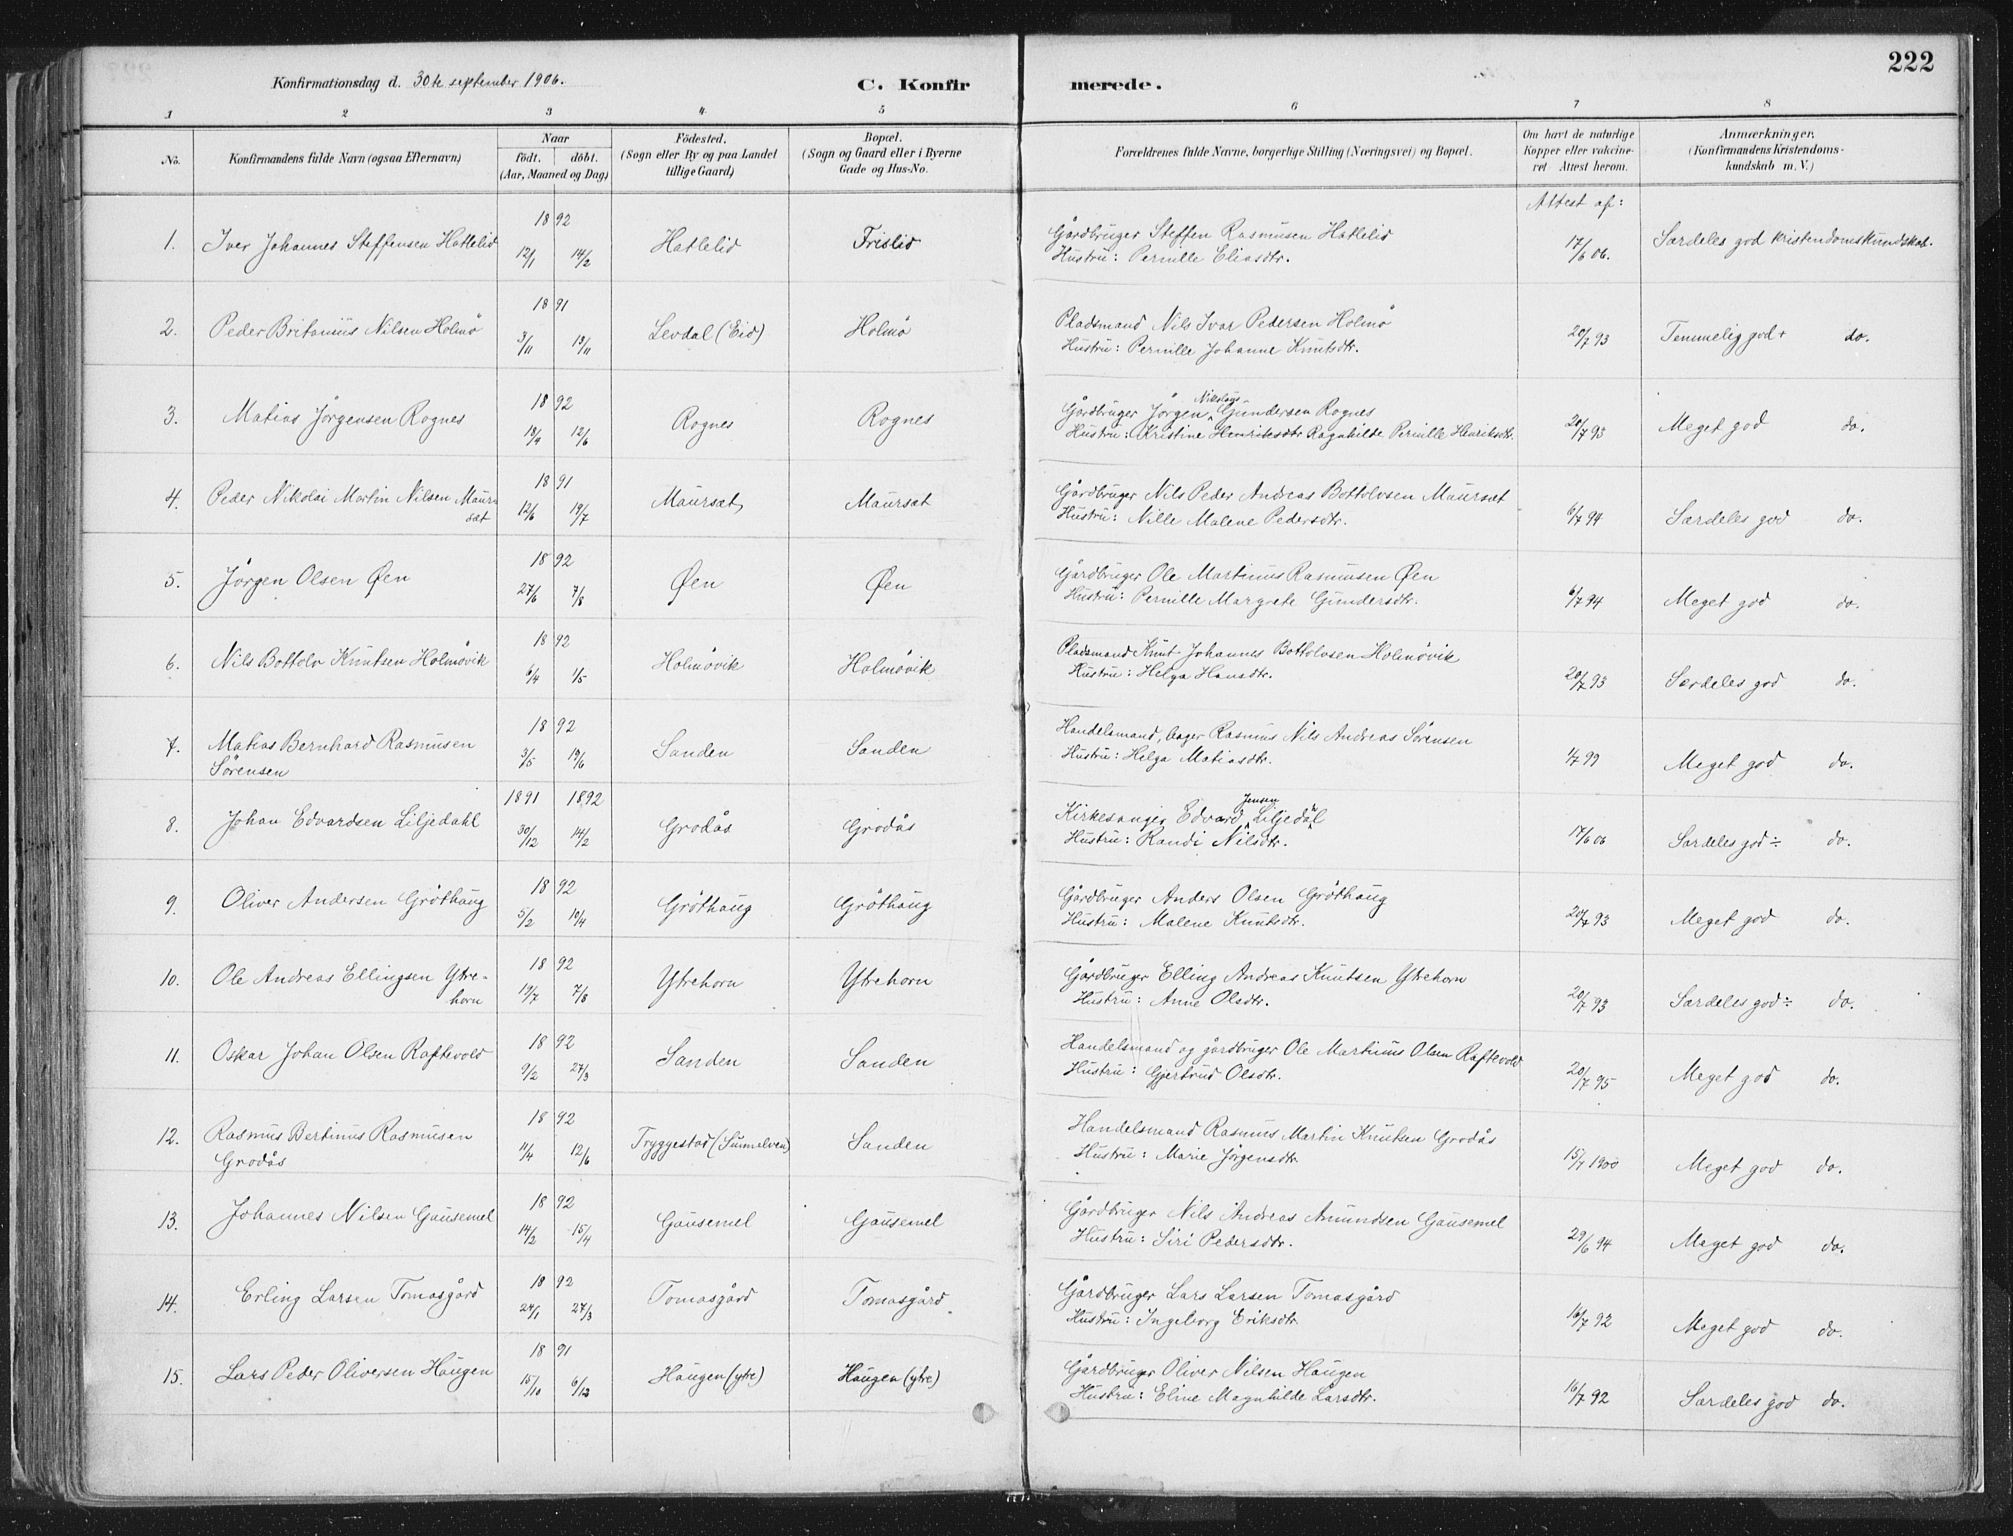 222
Konfirmationsdag d. 30te september 1906.
C. Konfirmerede.
1 2 3 4 5 6 7 8
No.
Konfirmandens fulde Navn (ogsaa Efternavn)
Naar
födt. döbt.
(Aar, Maaned og Dag)
Födested.
(Sogn eller By og paa Landet
tillige Gaard)
Bopæl.
(Sogn og Gaard eller i Byerne
Gade og Hus-No.
Forældrenes fulde Navne, borgerlige Stilling (Næringsvei) og Bopæl.
Om havt de naturlige
Kopper eller vakcine-
ret Attest herom.
Anmærkninger.
(Konfirmandens Kristendoms-
kundskab m. V.)
Attest af:
1. Iver Johannes Steffensen Hatlelid 1892 12/1 14/2 Hatlelid Frislid
Gårdbruger Steffen Rasmusen Hatlelid
Hustru: Pernille Eliasdtr.
17/6 06. Særdeles god kristendomskundskab.
2. Peder Britanius Nilsen Holmö 1891 3/11 13/11 Levdal (Eid) Holmö
Pladsmand Nils Ivar Pedersen Holmö
Hustru: Pernille Johanne Knutsdtr.
20/7 93 Temmelig god+ do.
3. Matias Jörgensen Rognes 1892 18/4 12/6 Rognes Rognes
Gårdbruger Jörgen Nikolays Gundersen Rognes
Hustru: Kristine Henriksdtr Ragnhilde Pernille Henriksdtr.
20/7 93 Meget god do.
4. Peder Nikolai Martin Nilsen Maur-
sæt 1891 12/6 19/7 Maursæt Maursæt
Gårdbruger Nils Peder Andreas Bottolvsen Maursæt
Hustru: Nille Malene Pedersdtr.
6/7 94 Særdeles god do.
5. Jörgen Olsen Øen 1892 27/6 7/8 Øen Øen
Gårdbruger Ole Martinus Rasmusen Øen
Hustru: Pernille Margrete Gundersdtr.
6/7 94 Meget god do.
6. Nils Bottolv Knutsen Holmövik 1892 6/4 1/5 Holmövik Holmövik
Pladsmand Knut Johannes Bottolvsen Holmövik
Hustru: Helga Hansdtr.
20/7 93 Særdeles god do.
7. Matias Bernhard Rasmusen
Sörensen 1892 3/5 19/6 Sanden Sanden
Handelsmand, bager Rasmus Nils Andreas Sörensen
Hustru: Helga Matiasdtr.
1/7 99 Meget god do.
8. Johan Edvardsen Liljedahl 1891 1892 30/12 14/2 Grodås Grodås
Kirkesanger Edvard Jensen Liljedahl
Hustru: Randi Nilsdtr.
17/6 06 Særdeles god÷ do.
9. Oliver Andersen Gröthaug 1892 5/2 10/4 Gröthaug Gröthaug
Gårdbruger Anders Olsen Gröthaug
Hustru: Malene Knutsdtr.
20/7 93 Meget god do.
10. Ole Andreas Ellingsen Ytre-
horn 1892 19/7 7/8 Ytrehorn Ytrehorn
Gårdbruger Elling Andreas Knutsen Ytrehorn
Hustru: Anne Olsdtr.
20/7 93 Særdeles god÷ do.
11. Oskar Johan Olsen Raftevold 1892 9/2 27/3 Sanden Sanden
Handelsmand og gårdbruger Ole Martinus Olsen Raftevold
Hustru: Gjertrud Olsdtr.
20/7 95 Meget god do.
12. Rasmus Bertinus Rasmusen
Grodås 1892 11/4 12/6 Tryggestad (Sunnelven) Sanden
Handelsmand Rasmus Martin Knutsen Grodås
Hustru: Marie Jörgensdtr.
15/7 1900 Meget god do.
13. Johannes Nilsen Gausemel 1892 14/2 15/4 Gausemel Gausemel
Gårdbruger Nils Andreas Amundsen Gausemel
Hustru: Siri Pedersdtr.
29/6 94 Meget god do.
14. Erling Larsen Tomasgård 1892 24/1 27/3 Tomasgård Tomasgård.
Gårdbruger Lars Larsen Tomasgård
Hustru: Ingeborg Eriksdtr.
16/7 92 Meget god do.
15. Lars Peder Oliversen Haugen 1891 15/10 6/12 Haugen (ytre) Haugen (ytre)
Gårdbruger Oliver Nilsen Haugen
Hustru: Eline Magnhilde Larsdtr.
16/7 92 Særdeles god do.